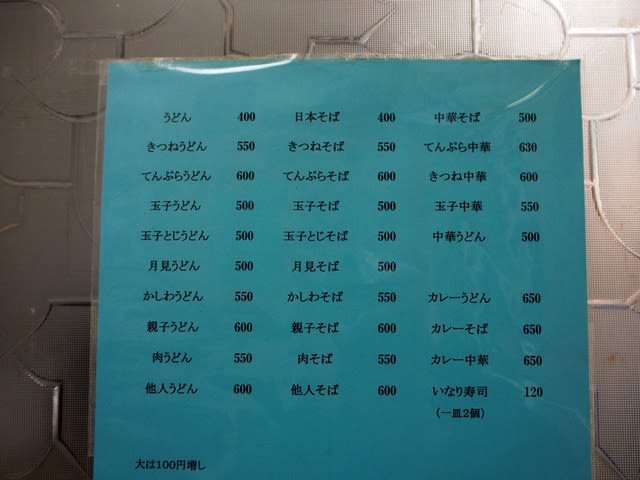 うどん 400 日本そば 400 中華そば 500
きつねうどん 550 きつねそば 550 てんぷら中華 630
てんぷらうどん 600 てんぷらそば 600 きつね中華 600
玉子うどん 500 玉子そば 500 玉子中華 550
玉子とじうどん 500 玉子とじそば 500 中華うどん 500
月見うどん 500 月見そば 500
かしわうどん 550 かしわそば 550 カレーうどん 650
親子うどん 600 親子そば 600 カレーそば 650
肉うどん 550 肉そば 550 カレー中華 650
他人うどん 600 他人そば 600 いなり寿司 120
(一皿2個)
大は100円増し